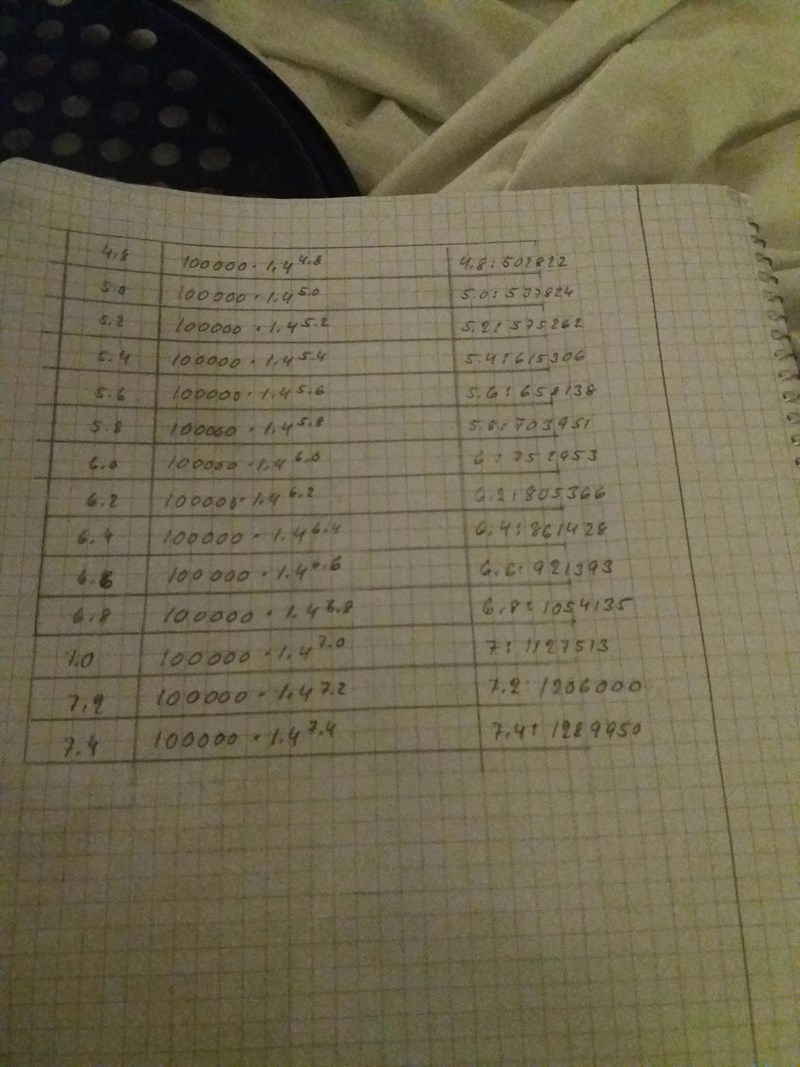 4,8 100000 · 1.4^4.8 4.8: 502822
5.0 100000 · 1.4^5.0 5.0: 537824
5.2 100000 · 1.4^5.2 5.2: 575262
5.4 100000 · 1.4^5.4 5.4: 615306
5.6 100000 · 1.4^5.6 5.6: 658138
5.8 100000 · 1.4^5.8 5.8: 703951
6.0 100000 · 1.4^6.0 6: 752953
6.2 100000 · 1.4^6.2 6.2: 805366
6.4 100000 · 1.4^6.4 6.4: 861428
6.6 100000 · 1.4^6.6 6.6: 921393
6.8 100000 · 1.4^6.8 6.8: 1054135
7.0 100000 · 1.4^7.0 7: 1127513
7,2 100000 · 1.4^7.2 7.2: 1206000
7.4 100000 · 1.4^7.4 7.4: 1289950